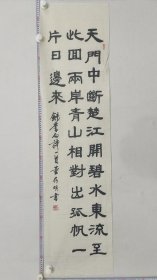 天門中斷楚江開碧水東流至
此回兩岸青山相對出孤帆一
片日邊來 錄李白詩一首